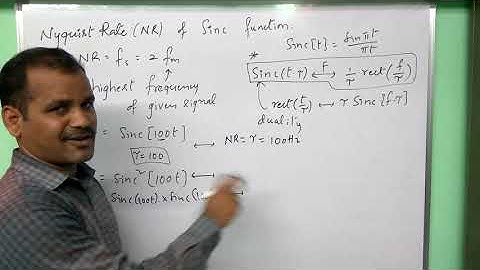 Nyquist Rate (NR) of Sinc function.
NR = fs = 2 fm
highest frequency
of given signal
Sinc[t] = sin πt / πt
* Sinc(t·τ) ←F→ 1/τ rect(f/τ)
rect(t/τ) ↔ τ Sinc[f·τ]
duality
= Sinc[100t] ↔ NR = τ = 100Hz
τ = 100
= Sinc² [100t] ↔
Sinc(100t) × Sinc(1